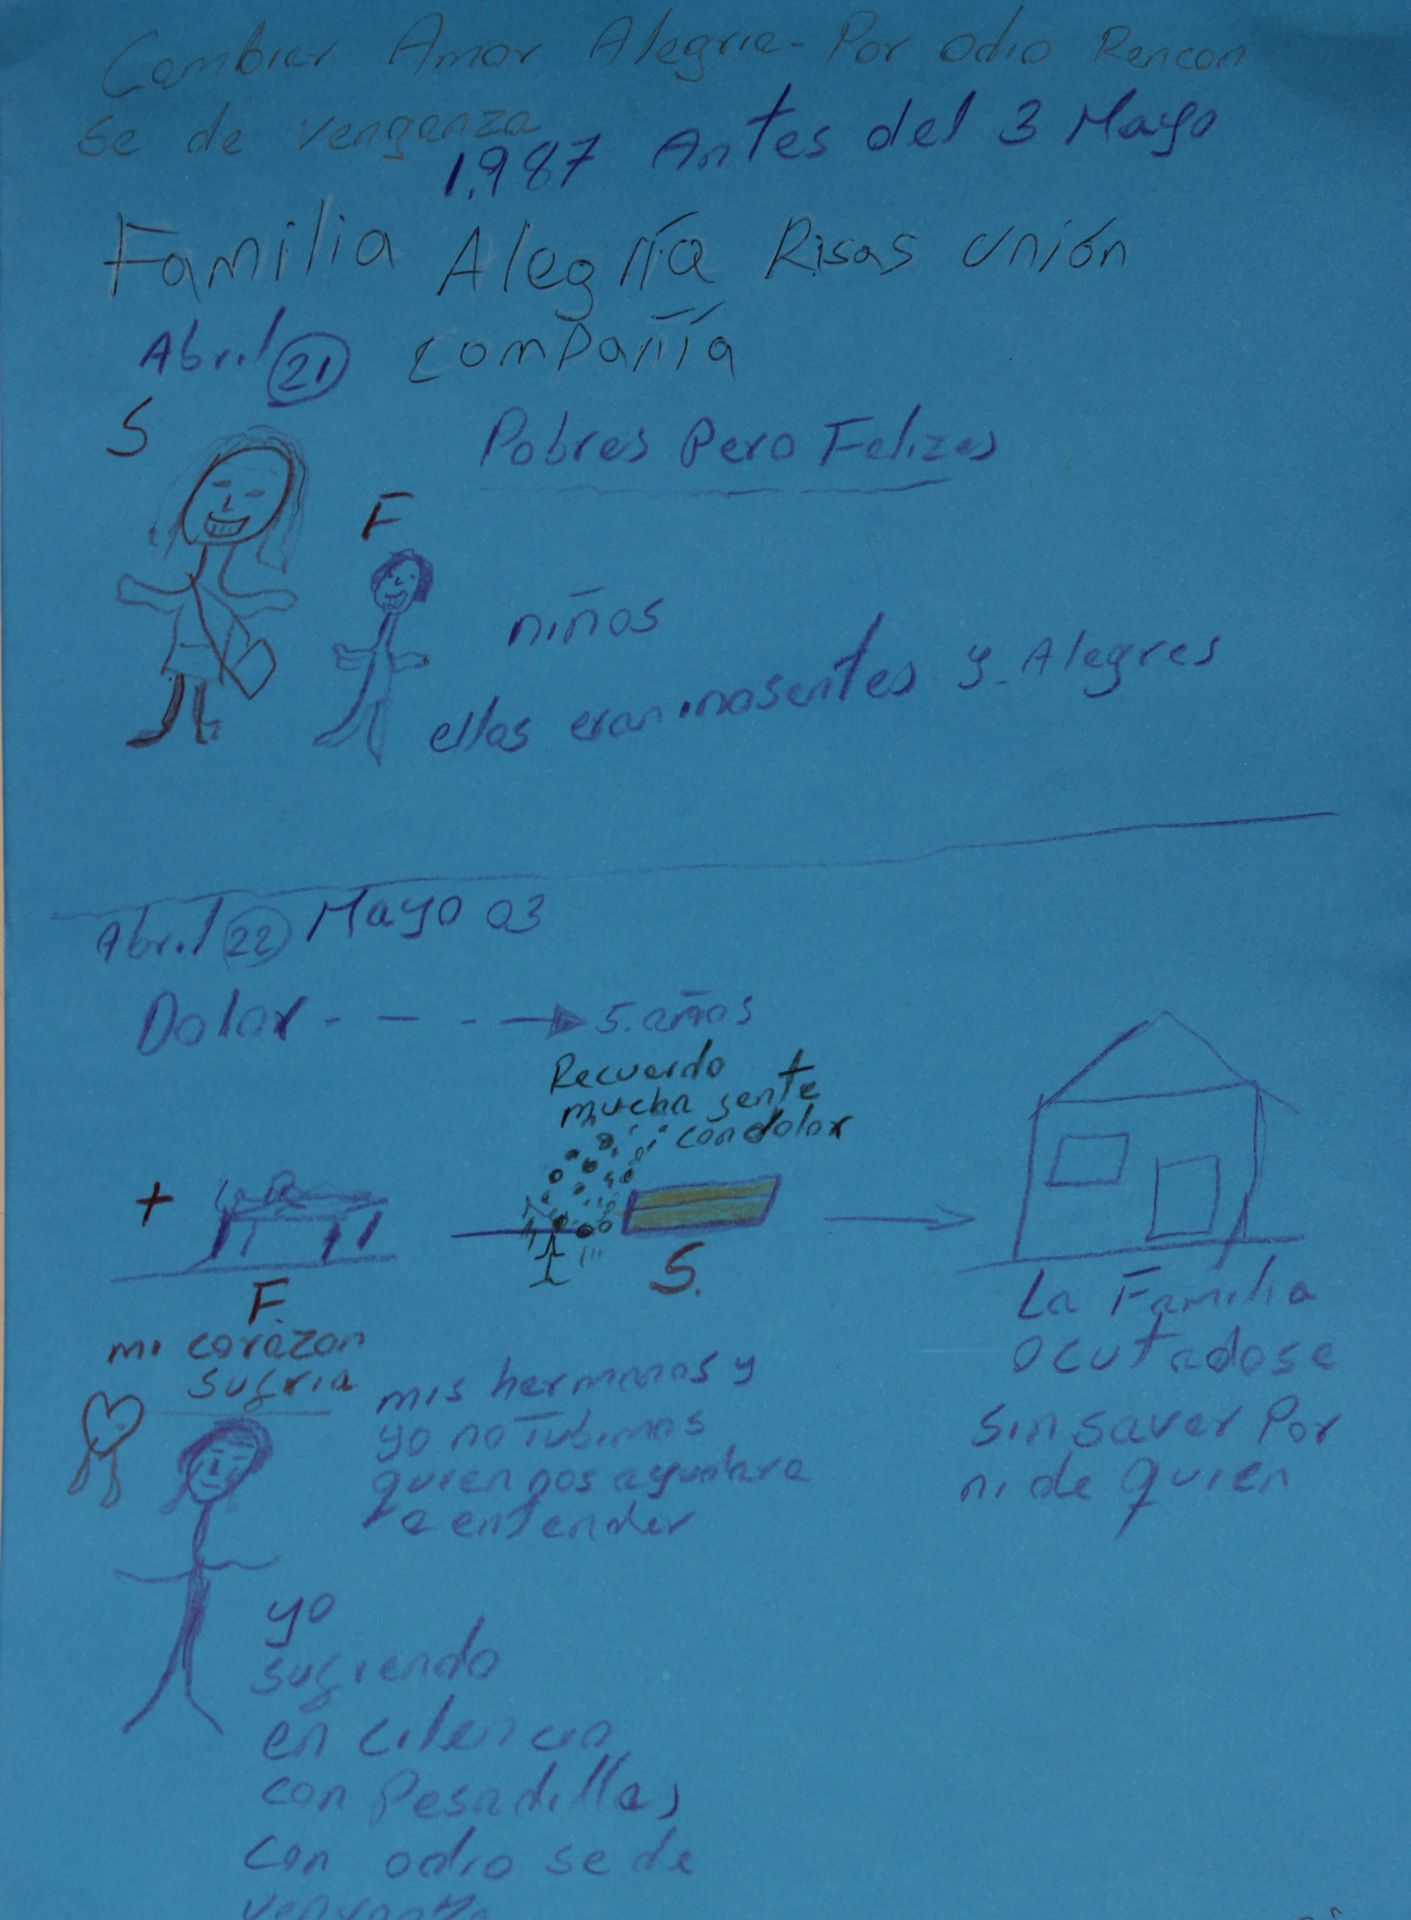 Cambiar Amor Alegria - Por odio Rencon
se de venganza
1.987 Antes del 3 Mayo
Familia Alegría Risas unión
Abril 21 compañía
S
Pobres Pero Felizes
F
niños
ellos eran inosentes y Alegres
Abril 22 Mayo 03
Dolor - - - → 5. años
Recuerdo +
mucha gente
con dolor
+
F.
S.
mi corazon
sufria
La Familia
ocutadose
sin saver Por
ni de quien
mis hermanos y
yo no Tubimos
quien nos ayudara
a entender
yo
sufriendo
en cilencio
con Pesadillas
con odio se de
venganza